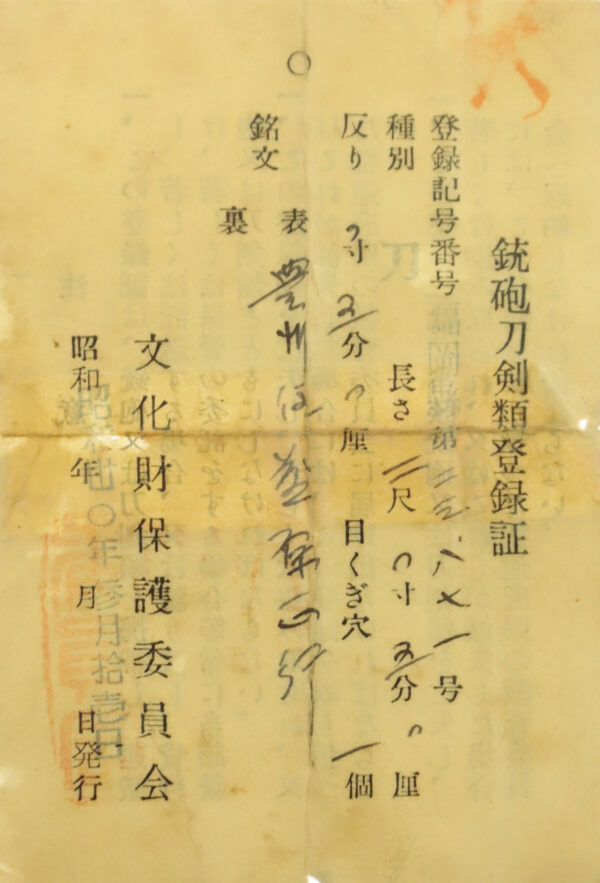 銃砲刀剣類登録証
登録記号番号 福岡県第二三八七一号
種別 刀 長さ 二尺〇寸五分〇厘
反り 〇寸五分〇厘 目くぎ穴 一個
銘文 表 豊州住藤原正行
裏
文化財保護委員会
昭和 年 月 日発行
昭和四〇年参月拾壱日